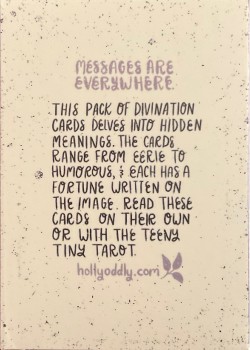 MESSAGES ARE
EVERYWHERE.
THIS PACK OF DIVINATION
CARDS DELVES INTO HIDDEN
MEANINGS. THE CARDS
RANGE FROM EERIE TO
HUMOROUS, & EACH HAS A
FORTUNE WRITTEN ON
THE IMAGE. READ THESE
CARDS ON THEIR OWN
OR WITH THE TEENY
TINY TAROT.
hollyoddly.com